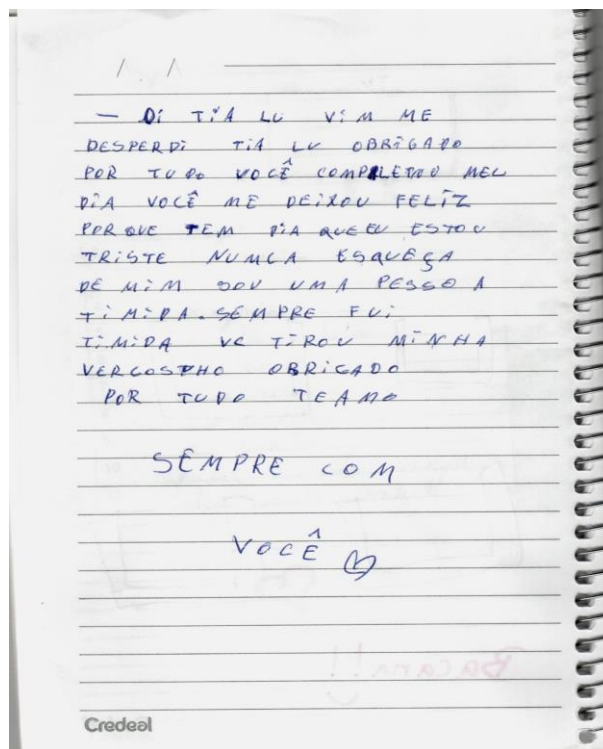 / /
— Di TiA LU ViM ME
DESPERDi TiA LU OBRiGADO
POR TUDO VOCÊ COMPLETOU MEU
DiA VOCÊ ME DEiXOU FELIZ
PORQUE TEM DIA QUE EU ESTOU
TRISTE NUMCA ESQUEÇA
DE MiM SOU UMA PESSOA
TiMiDA. SEMPRE FUi
TiMiDA VC TIROU MINHA
OBRiGADO
POR TUDO TEAMO
SEMPRE COM
VOCÊ
Bacana!!
Credeal